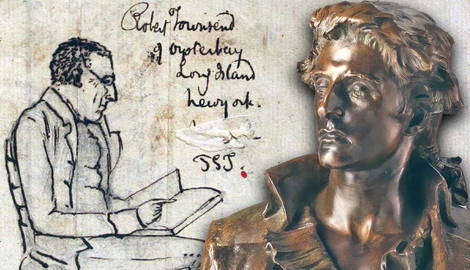 Robert Townsend
of oysterbay
Long Island
Newyork.
TST.